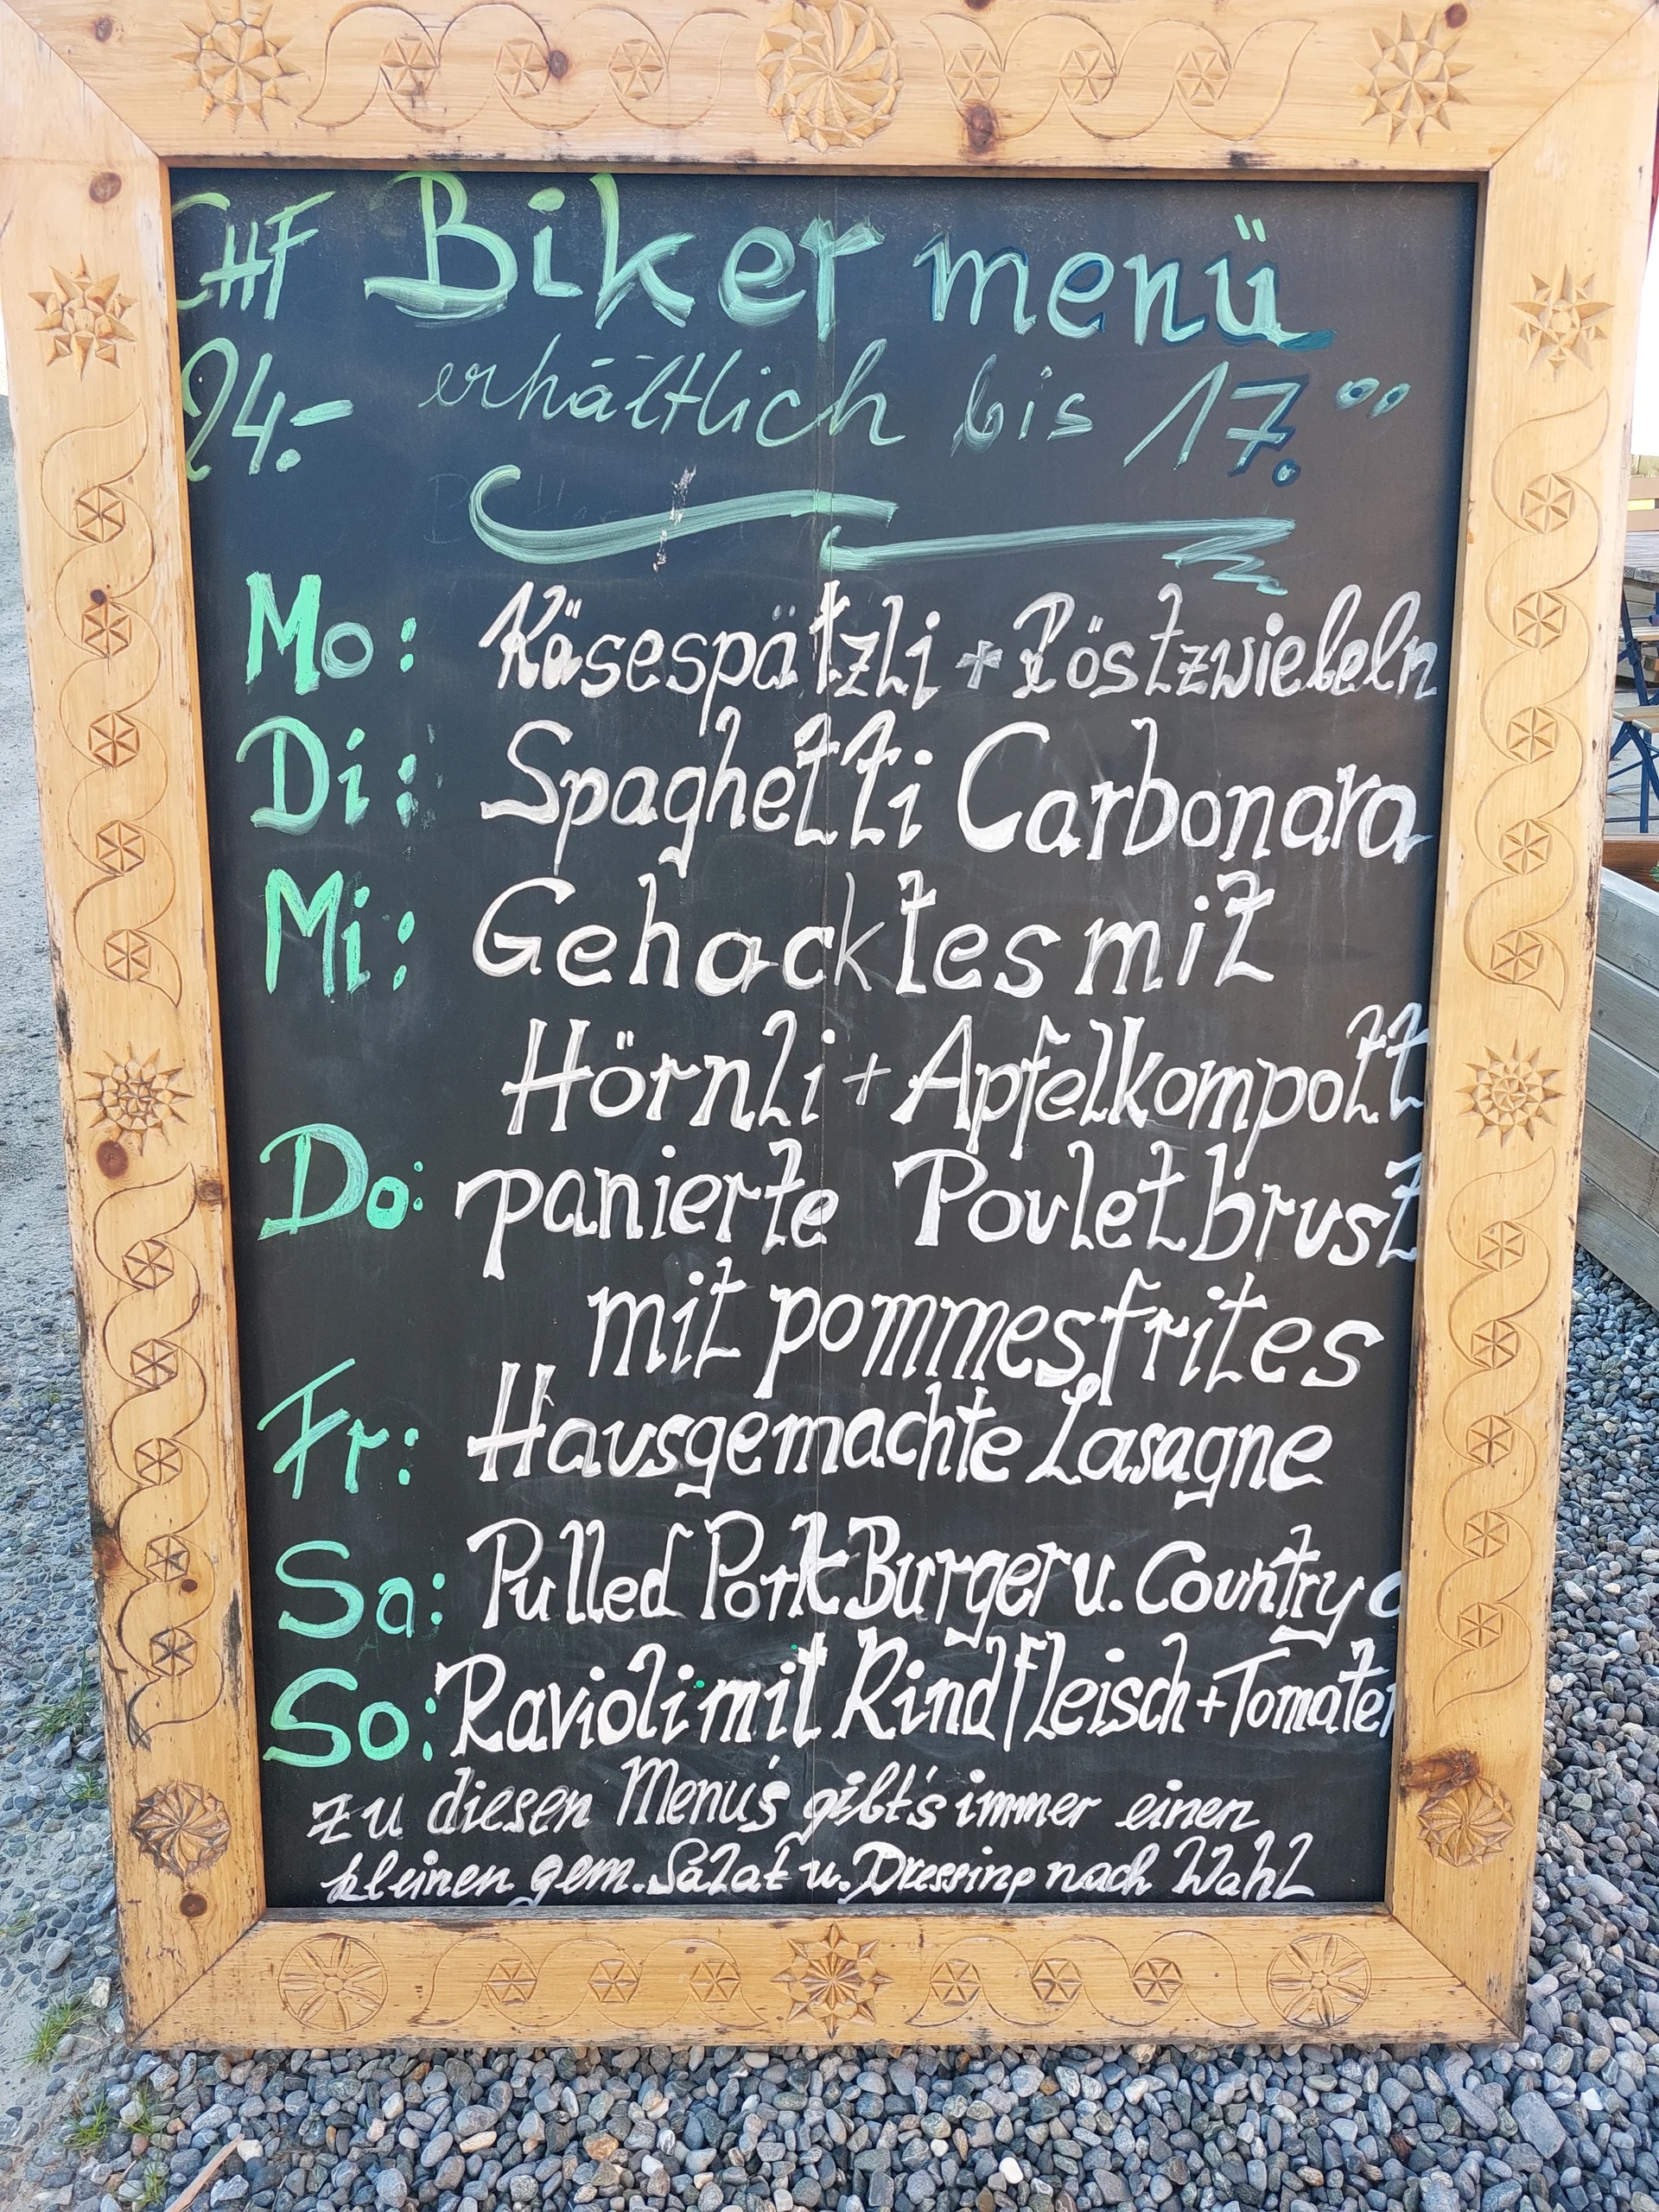 CHF Biker menü
24.- erhältlich bis 17.00
Mo: Käsespätzli + Röstzwiebeln
Di: Spaghetti Carbonara
Mi: Gehacktes mit
Hörnli + Apfelkompott
Do: panierte Pouletbrust
mit pommesfrites
Fr: Hausgemachte Lasagne
Sa: Pulled Pork Burger u. Country C
So: Ravioli mit Rindfleisch + Tomaten
zu diesen Menu's gibt's immer einen
kleinen gem. Salat u. Dressing nach Wahl